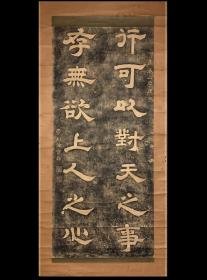 行可以對天之事
存無欲上人之心